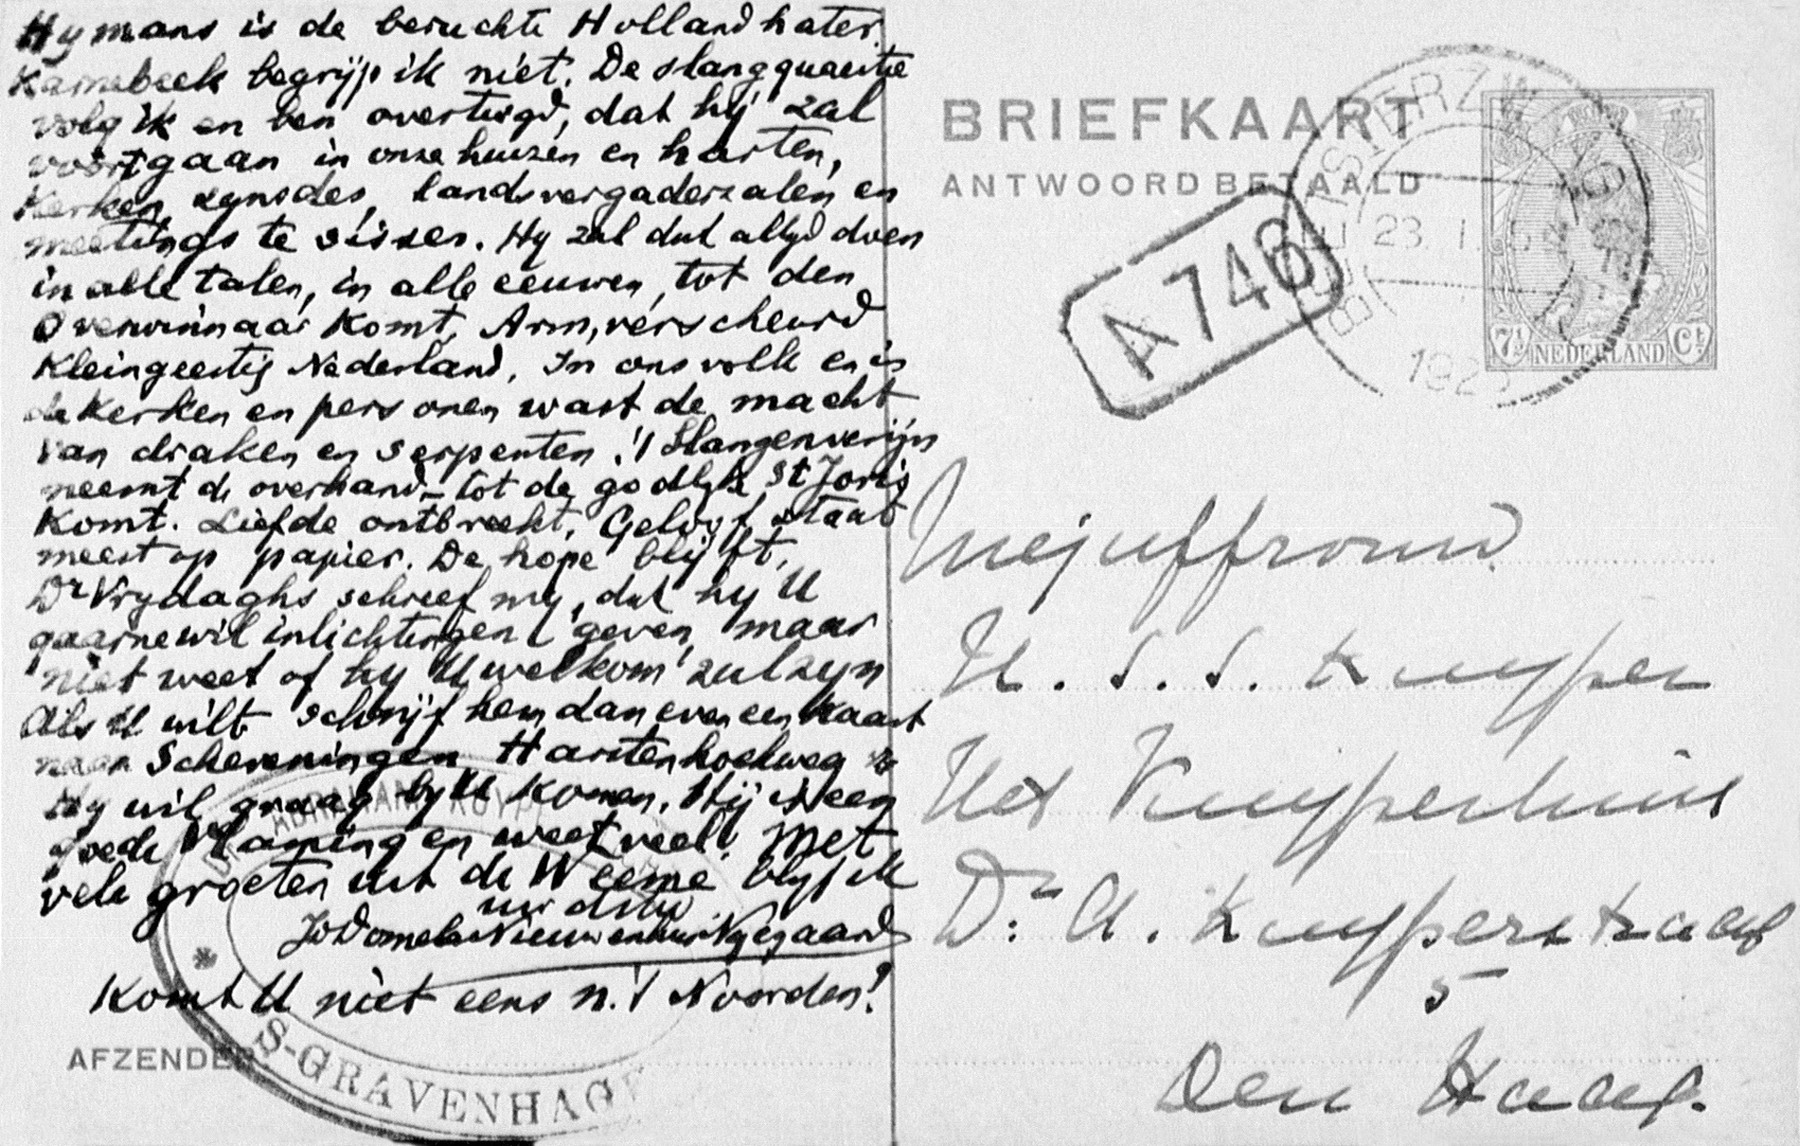 Hymans is de beruchte Hollandhater.
Karnebeek begrijp ik niet. De slangquaestie
volg ik en ben overtuigd, dat hij zal
voortgaan in onze huizen en harten,
Kerken, synodes, landsvergaderzalen en
meetings te sissen. Hy zal dat altyd doen
in alle talen, in alle eeuwen, tot den
Overwinnaar Komt, Arm, verscheurd
Kleingeestig Nederland. In ons volk en in
de Kerken en personen wast de macht
van draken en serpenten. 't Slangenvenijn
neemt de overhand - tot de godlyke St Joris
Komt. Liefde ontbreekt, Geloof staat
meest op papier. De hope blijft,
Dr Vrydaghs schreef my, dat hy U
gaarne wil inlichtingen geven, maar
niet weet of hy U welkom zal zyn
Als U wilt schrijf hem dan even een Kaart
naar Scheveningen Harstenhoekweg
Hy wil graag by U Komen. Hij is een
goede Vlaming en weet veel. Met
vele groeten uit de Weeme blyf ik
JD Domela Nieuwenhuis Nyegaard
Komt U niet eens n. 't Noorden?
AFZENDER
ABRAHAM KUYP
'S-GRAVENHAGE
BRIEFKAART
ANTWOORD BETAALD
A 746
BEETSTERZWAAG
23. 1.
192
7½ NEDERLAND Ct
Mejuffrouw
H. S. S. Kuyper
Het Kuyperhuis
Dr. A. Kuyperstraat
5
Den Haag.